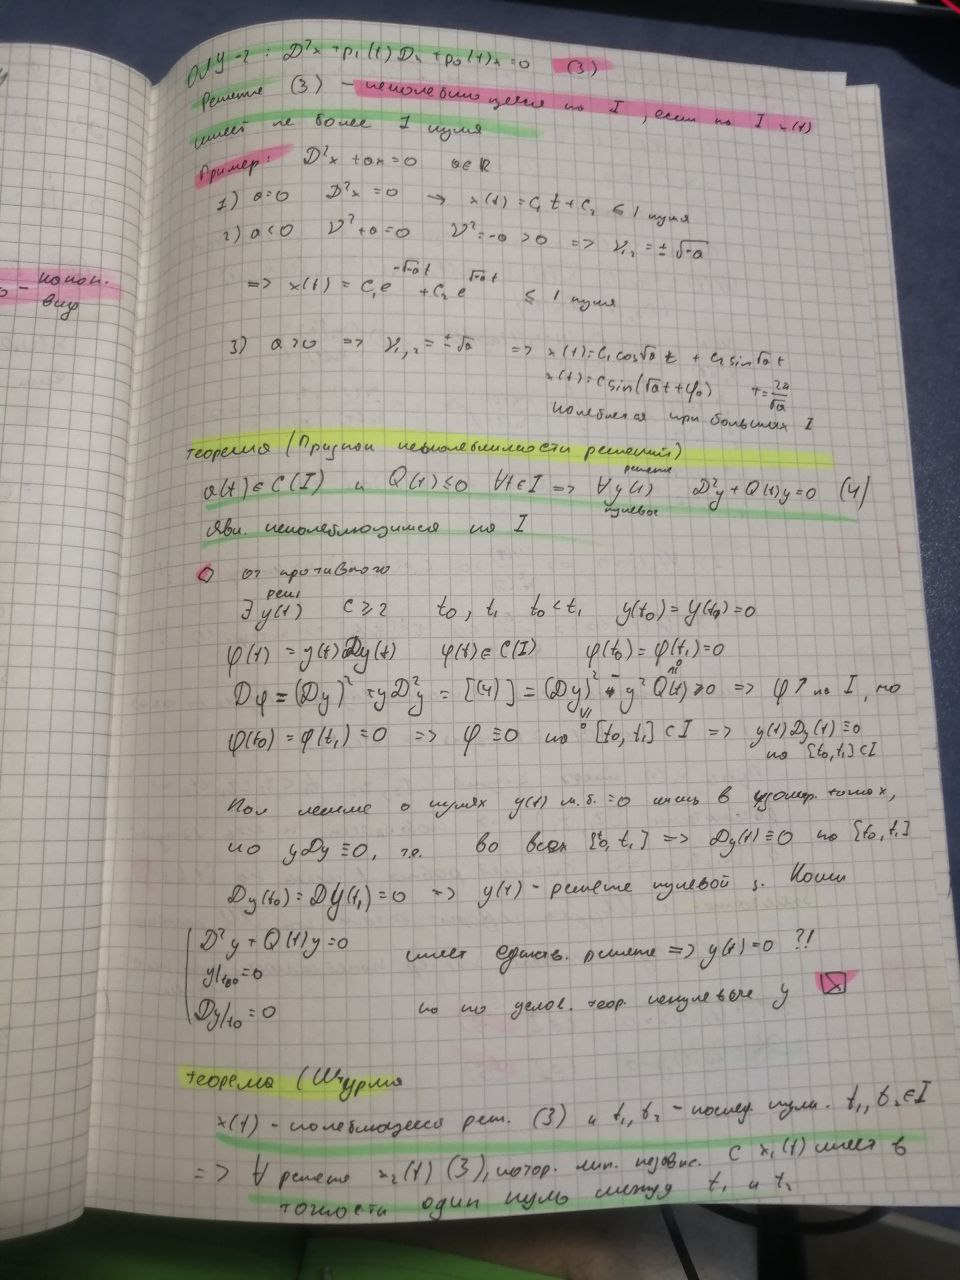 - канон.
вид
ОЛУ-2: D²x + p₁(t)Dx + p₀(t)x = 0 (3)
Решение (3) - неколеблющееся на I, если на I x(t)
имеет не более 1 нуля
Пример: D²x + ax = 0 a ∈ R
1) a = 0 D²x = 0 → x(t) = C₁t + C₂ ≤ 1 нуля
2) a < 0 ν² + a = 0 ν² = -a > 0 => ν₁,₂ = ±√-a
=> x(t) = C₁e^(-√-a t) + C₂e^(√-a t) ≤ 1 нуля
3) a > 0 => ν₁,₂ = ±√a => x(t) = C₁cos√a t + C₂ sin√a t
x(t) = C sin(√a t + φ₀) T = 2π/√a
колеблется при больших I
Теорема (Признак неколеблемости решений)
Q(t) ∈ C(I) и Q(t) ≤ 0 ∀t ∈ I => ∀ y(t) решение D²y + Q(t)y = 0 (4)
явл. неколеблющимся на I
от противного
∃ реш y(t) с ≥ 2 t₀, t₁ t₀ < t₁ y(t₀) = y(t₁) = 0
φ(t) = y(t)Dy(t) φ(t) ∈ C(I) φ(t₀) = φ(t₁) = 0
Dφ = (Dy)² + yD²y = [(4)] = (Dy)² - y²Q(t) ≥ 0 => φ↗ на I, но
φ(t₀) = φ(t₁) = 0 => φ ≡ 0 на [t₀, t₁] ⊂ I => y(t)Dy(t) ≡ 0
на [t₀, t₁] ⊂ I
По лемме о нулях y(t) м.б. = 0 лишь в точках,
но yDy ≡ 0, т.е. во всех [t₀, t₁] => Dy(t) ≡ 0 на [t₀, t₁]
Dy(t₀) = Dy(t₁) = 0 => y(t) - решение нулевой з. Коши
D²y + Q(t)y = 0 имеет единств. решение => y(t) = 0 ?!
y|t₀ = 0
Dy|t₀ = 0 но по услов. теор. ненулевые y
Теорема (Штурма
x(t) - колеблющееся реш. (3) и t₁, t₂ - послед. нули. t₁, t₂ ∈ I
=> ∀ решение x₂(t) (3), котор. лин. независ. с x₁(t) имеет в
точности один нуль между t₁ и t₂